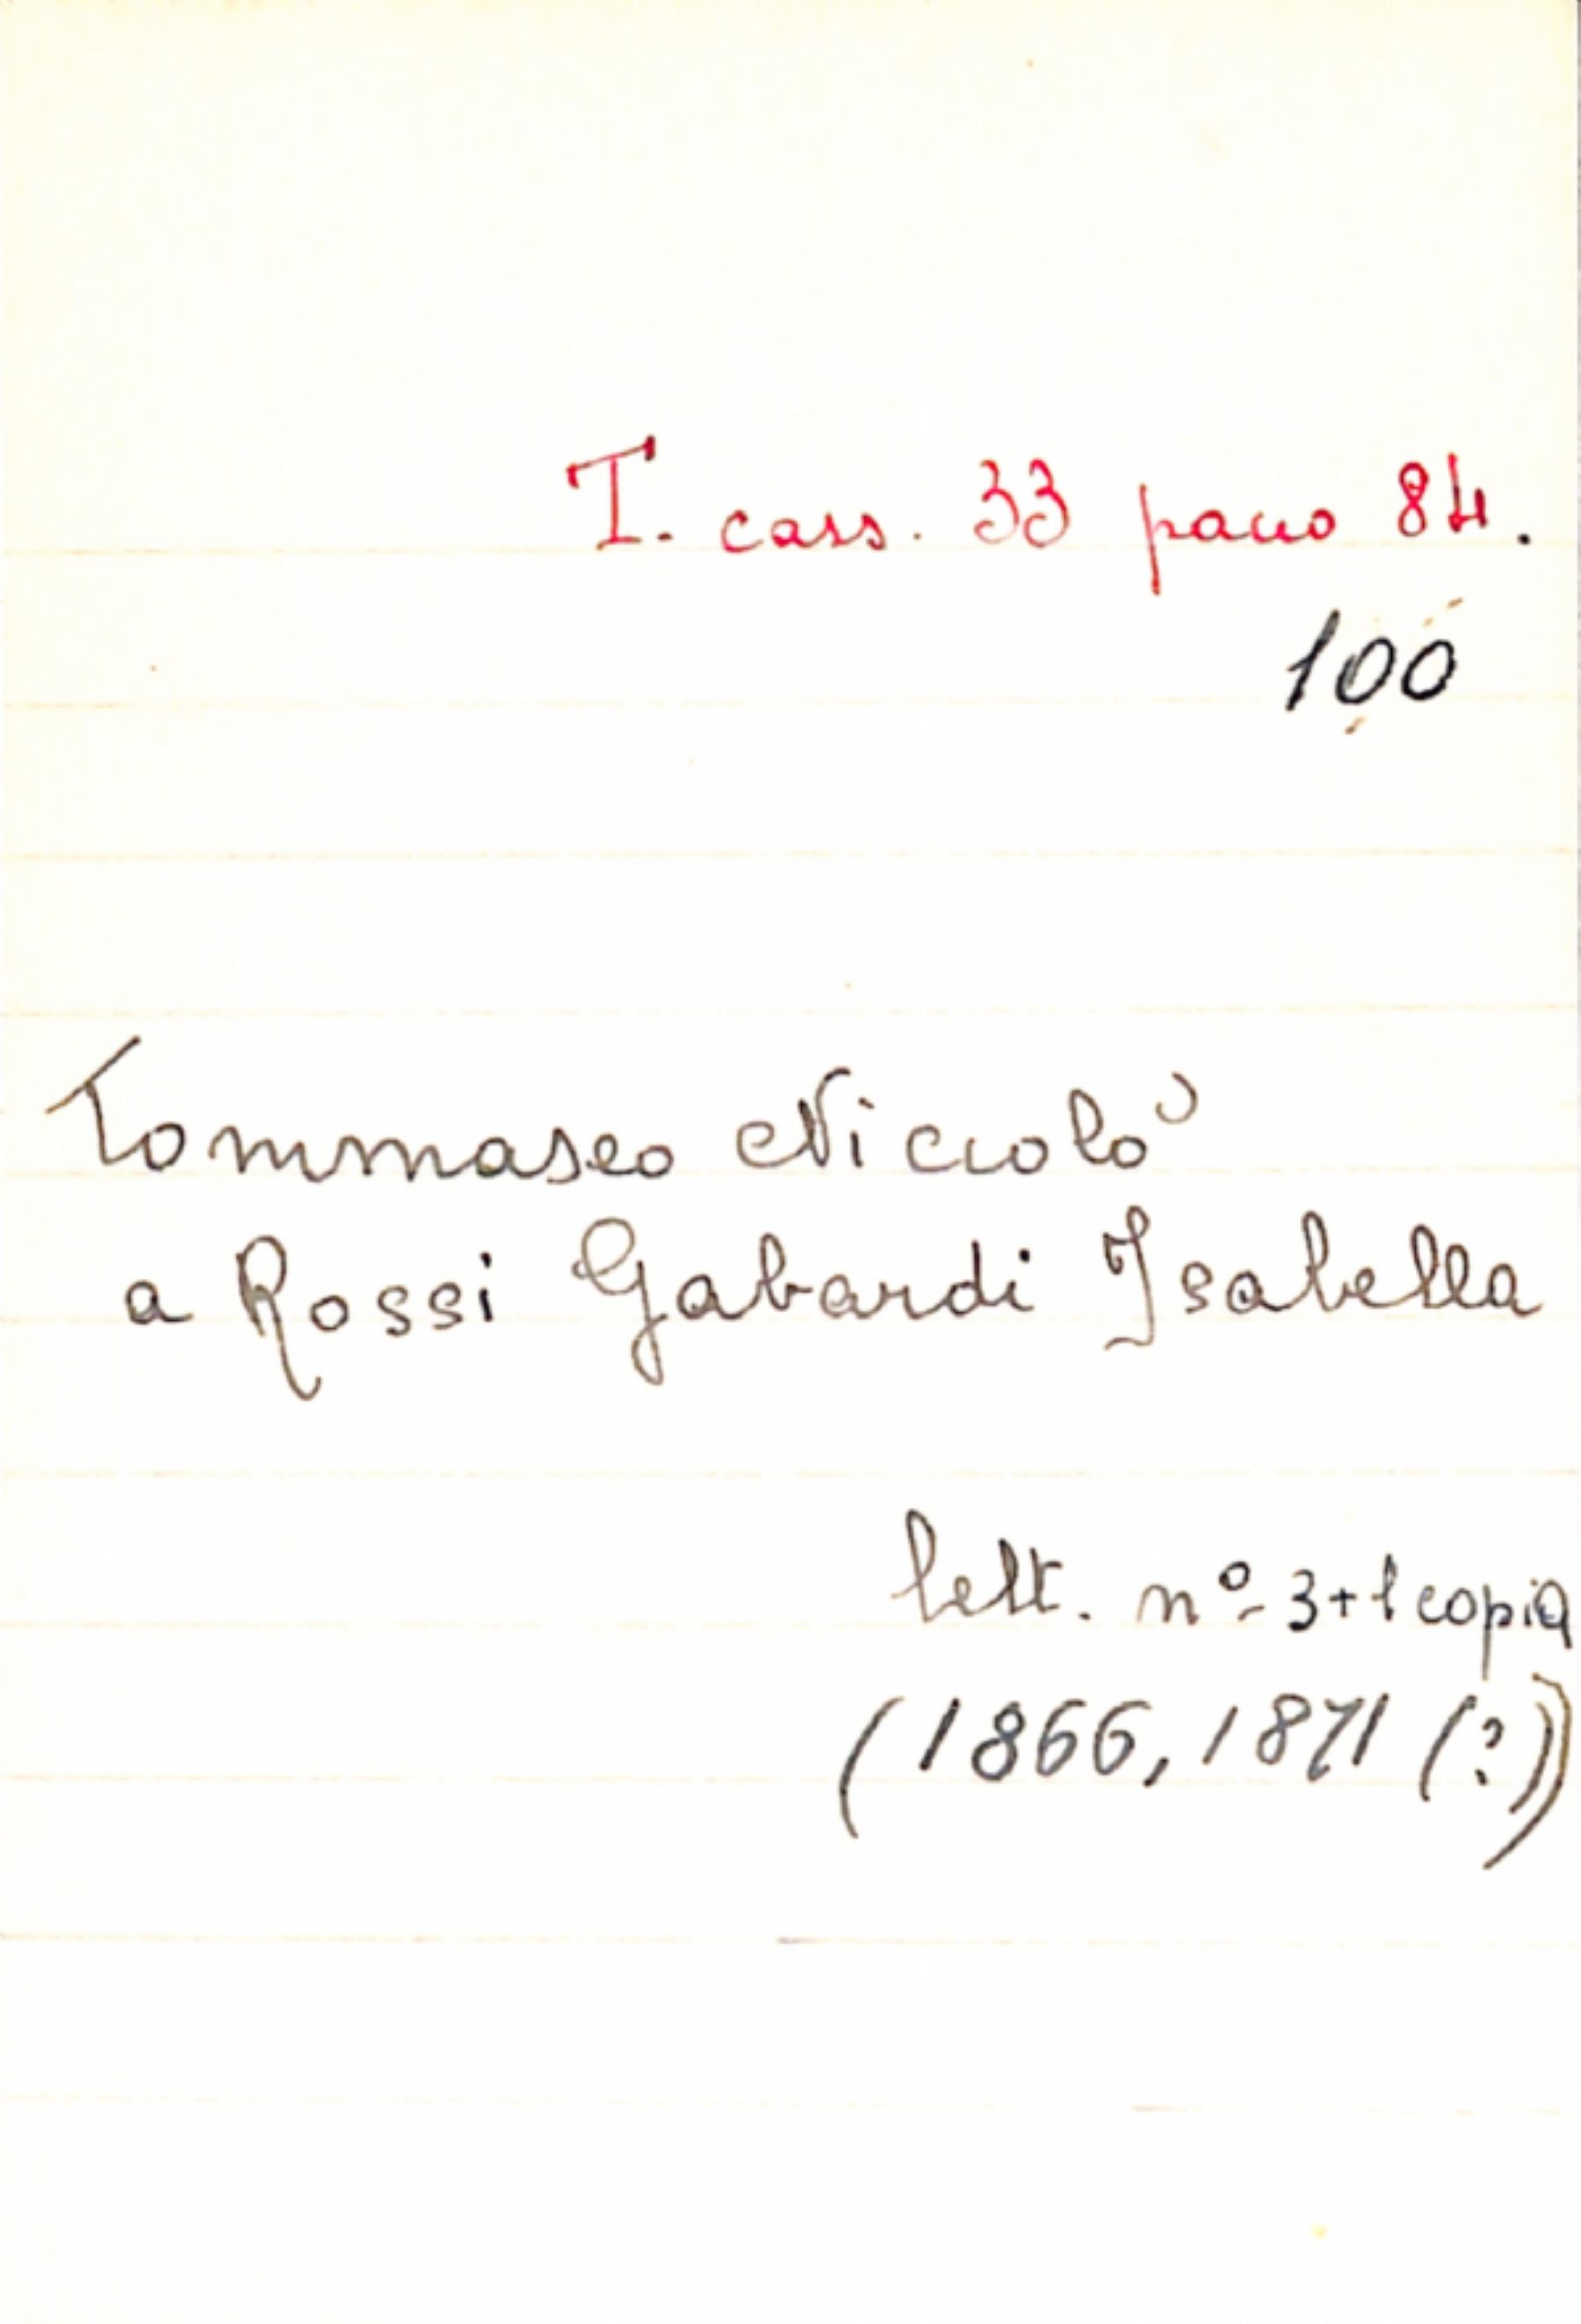 T. cass. 33 pacco 84.
100
Tommaseo Niccolò
a Rossi Gabardi Isabella
lett. nº 3+1 copia
(1866, 1871 (?))